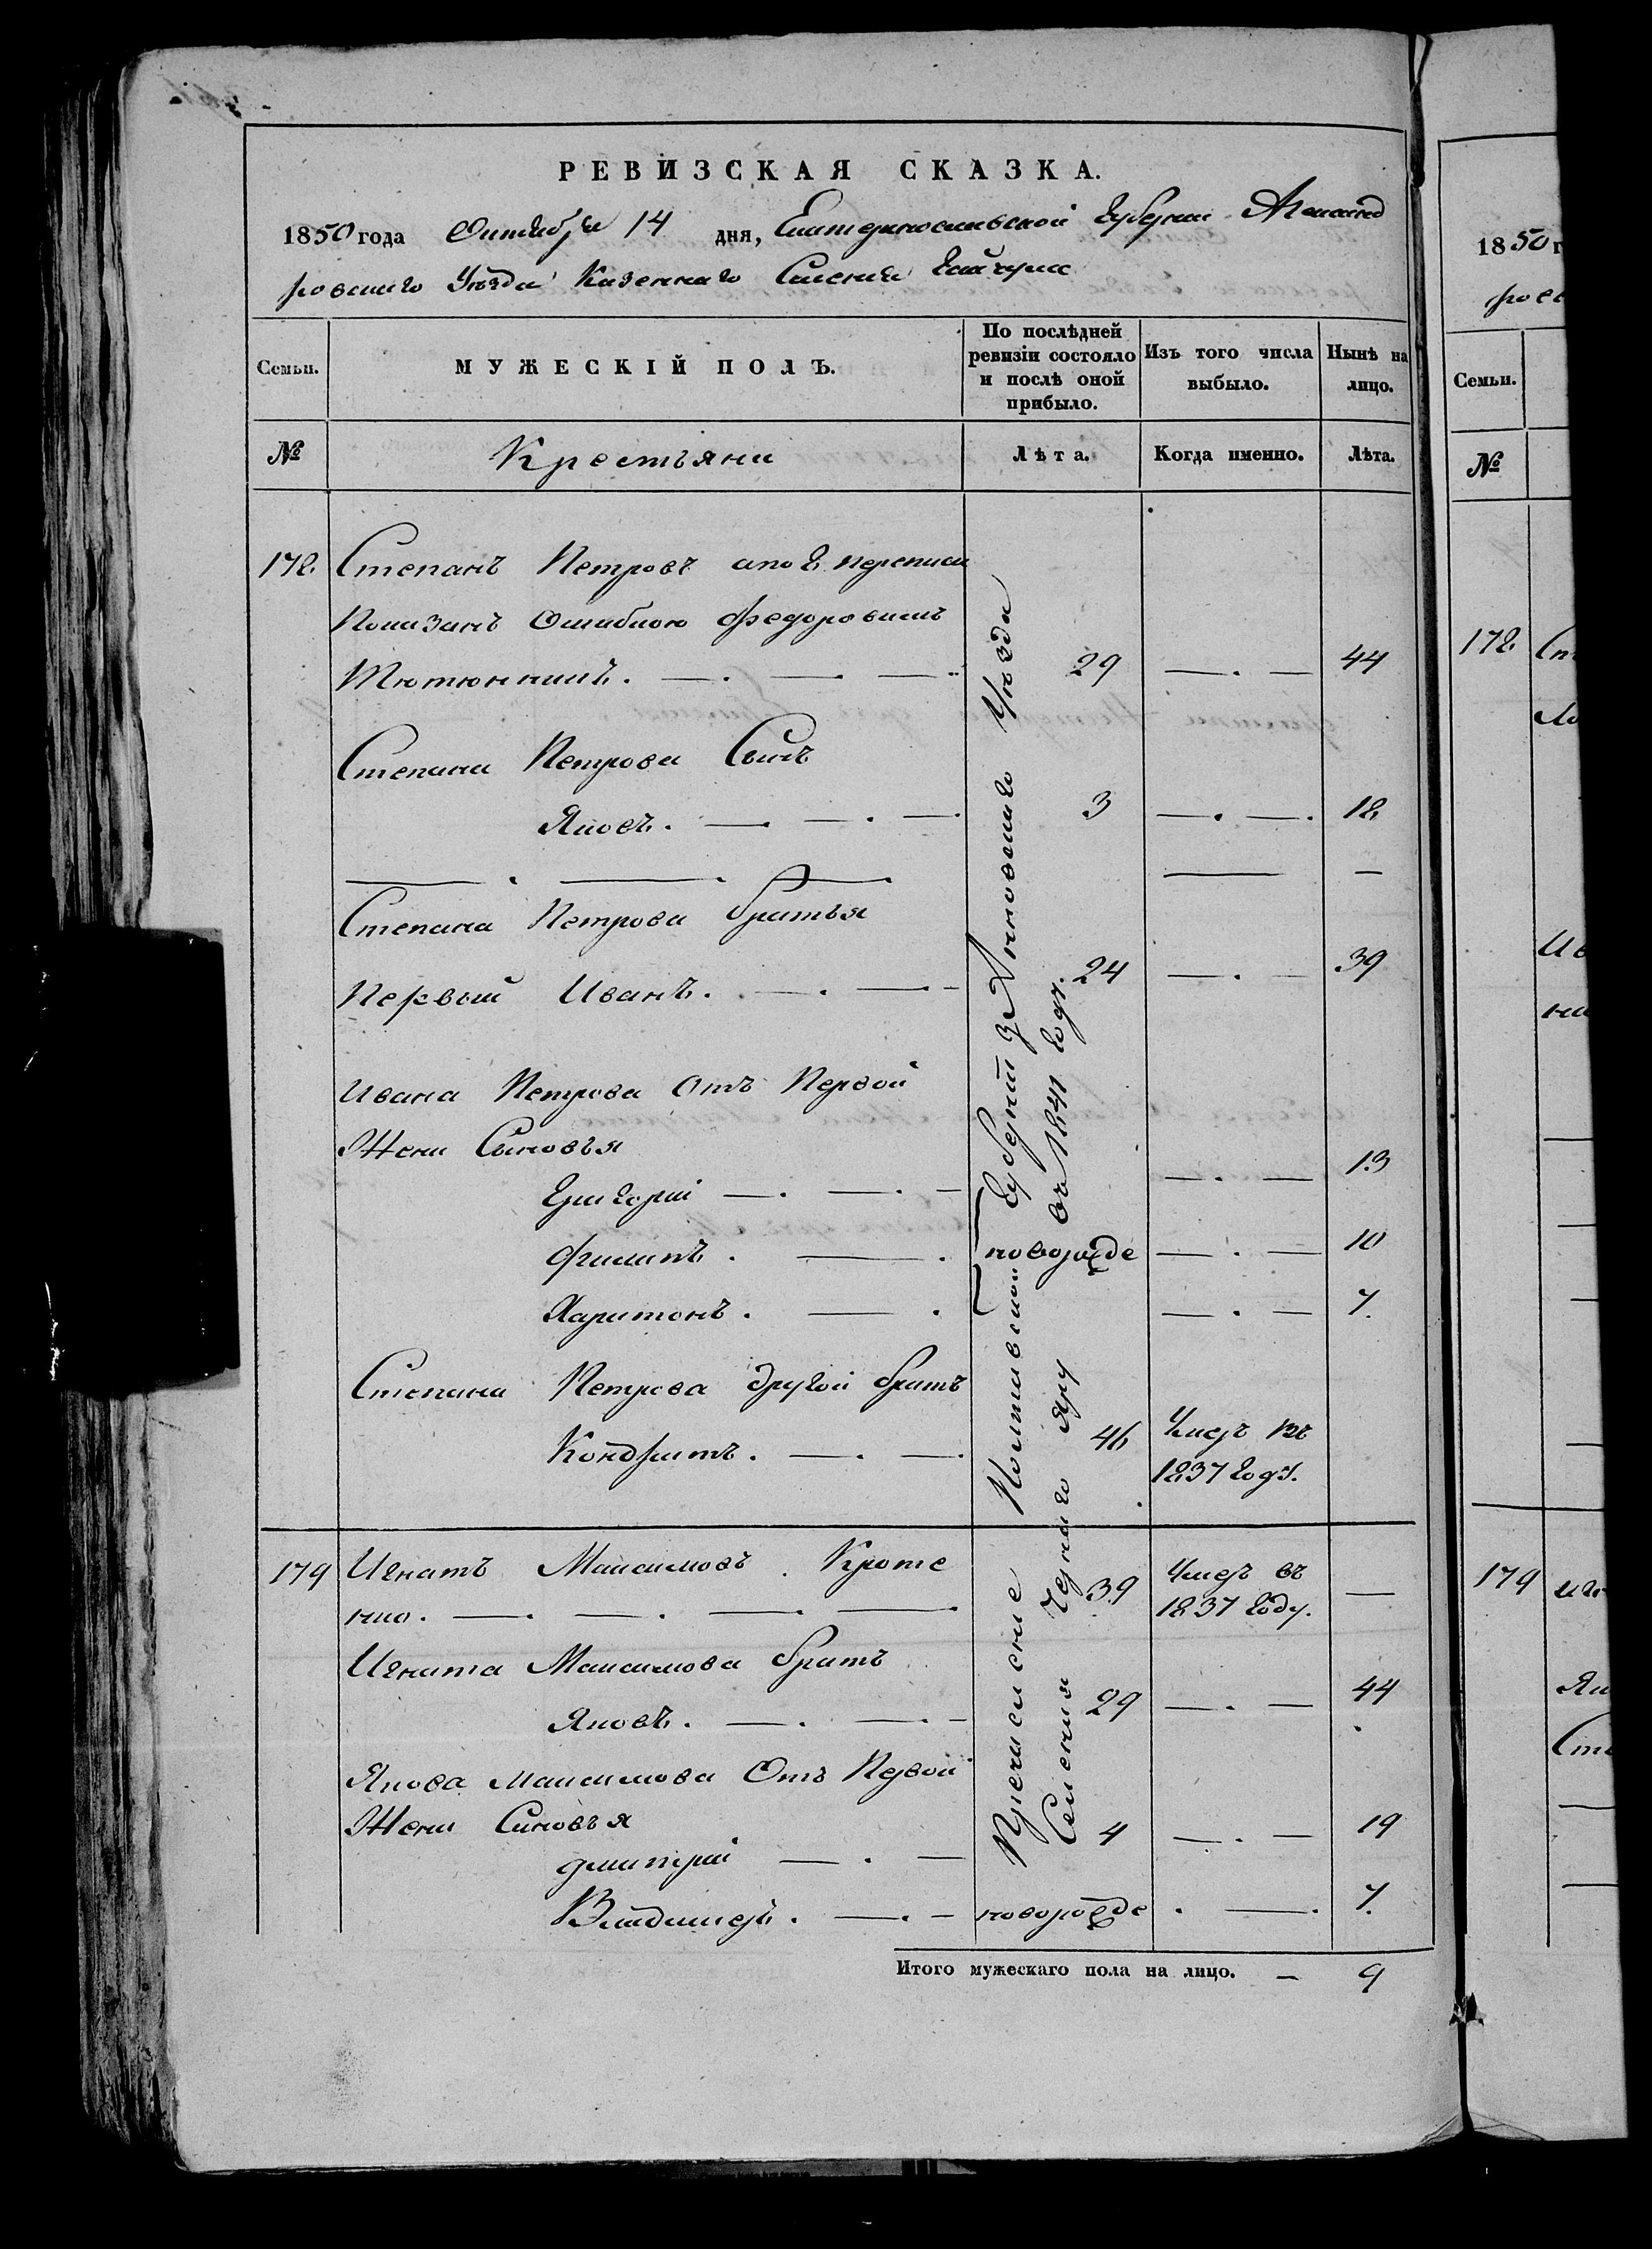 РЕВИЗСКАЯ СКАЗКА.
1850 года Октября 14 дня, Екатеринославской губернии Александ
ровскаго Уѣзда Казеннаго Селения Гайчула
Семьи.
МУЖЕСКІЙ ПОЛЪ.
По послѣдней
ревизіи состояло
и послѣ оной
прибыло.
Изъ того числа
выбыло.
Нынѣ на
лицо.
№
Крестьяни
Лѣта.
Когда именно.
Лѣта.
178. Степанъ Петровъ а по 8 переписи
Показанъ Ошибкою Федоровимъ
Тютюнникъ. 29 — . — 44
Степана Петрова Сынъ
Яковъ. 3 — . — . 18
Степана Петрова братья
Первый Иванъ. 24 — . — 39
Ивана Петрова Отъ Первой
Жени Сыновья
Григорій — . — 13
Филипъ . новорожде — . — 10
Харитонъ . — . — 7.
Степана Петрова другой братъ
Кондратъ. 46 Умеръ въ
1837 году.
179 Игнатъ Максимовъ Кроте
нко. 39 Умеръ въ
1837 году. —
Игната Максимова братъ
Яковъ. 29 — . — 44
Якова Максимова Отъ Первой
Жени Синовья
дмитрій 4 — . — 19
Владимеръ. новорожде . — . 7.
Причисление Полтавской Губерніи Зѣнковскаго Уѣзда
Селения Чернаго Яру въ 1841 году.
Итого мужескаго пола на лицо. — 9
1850 г
ровс
Семьи.
№
178 Ст
Ив
179 Иг
Як
Сте